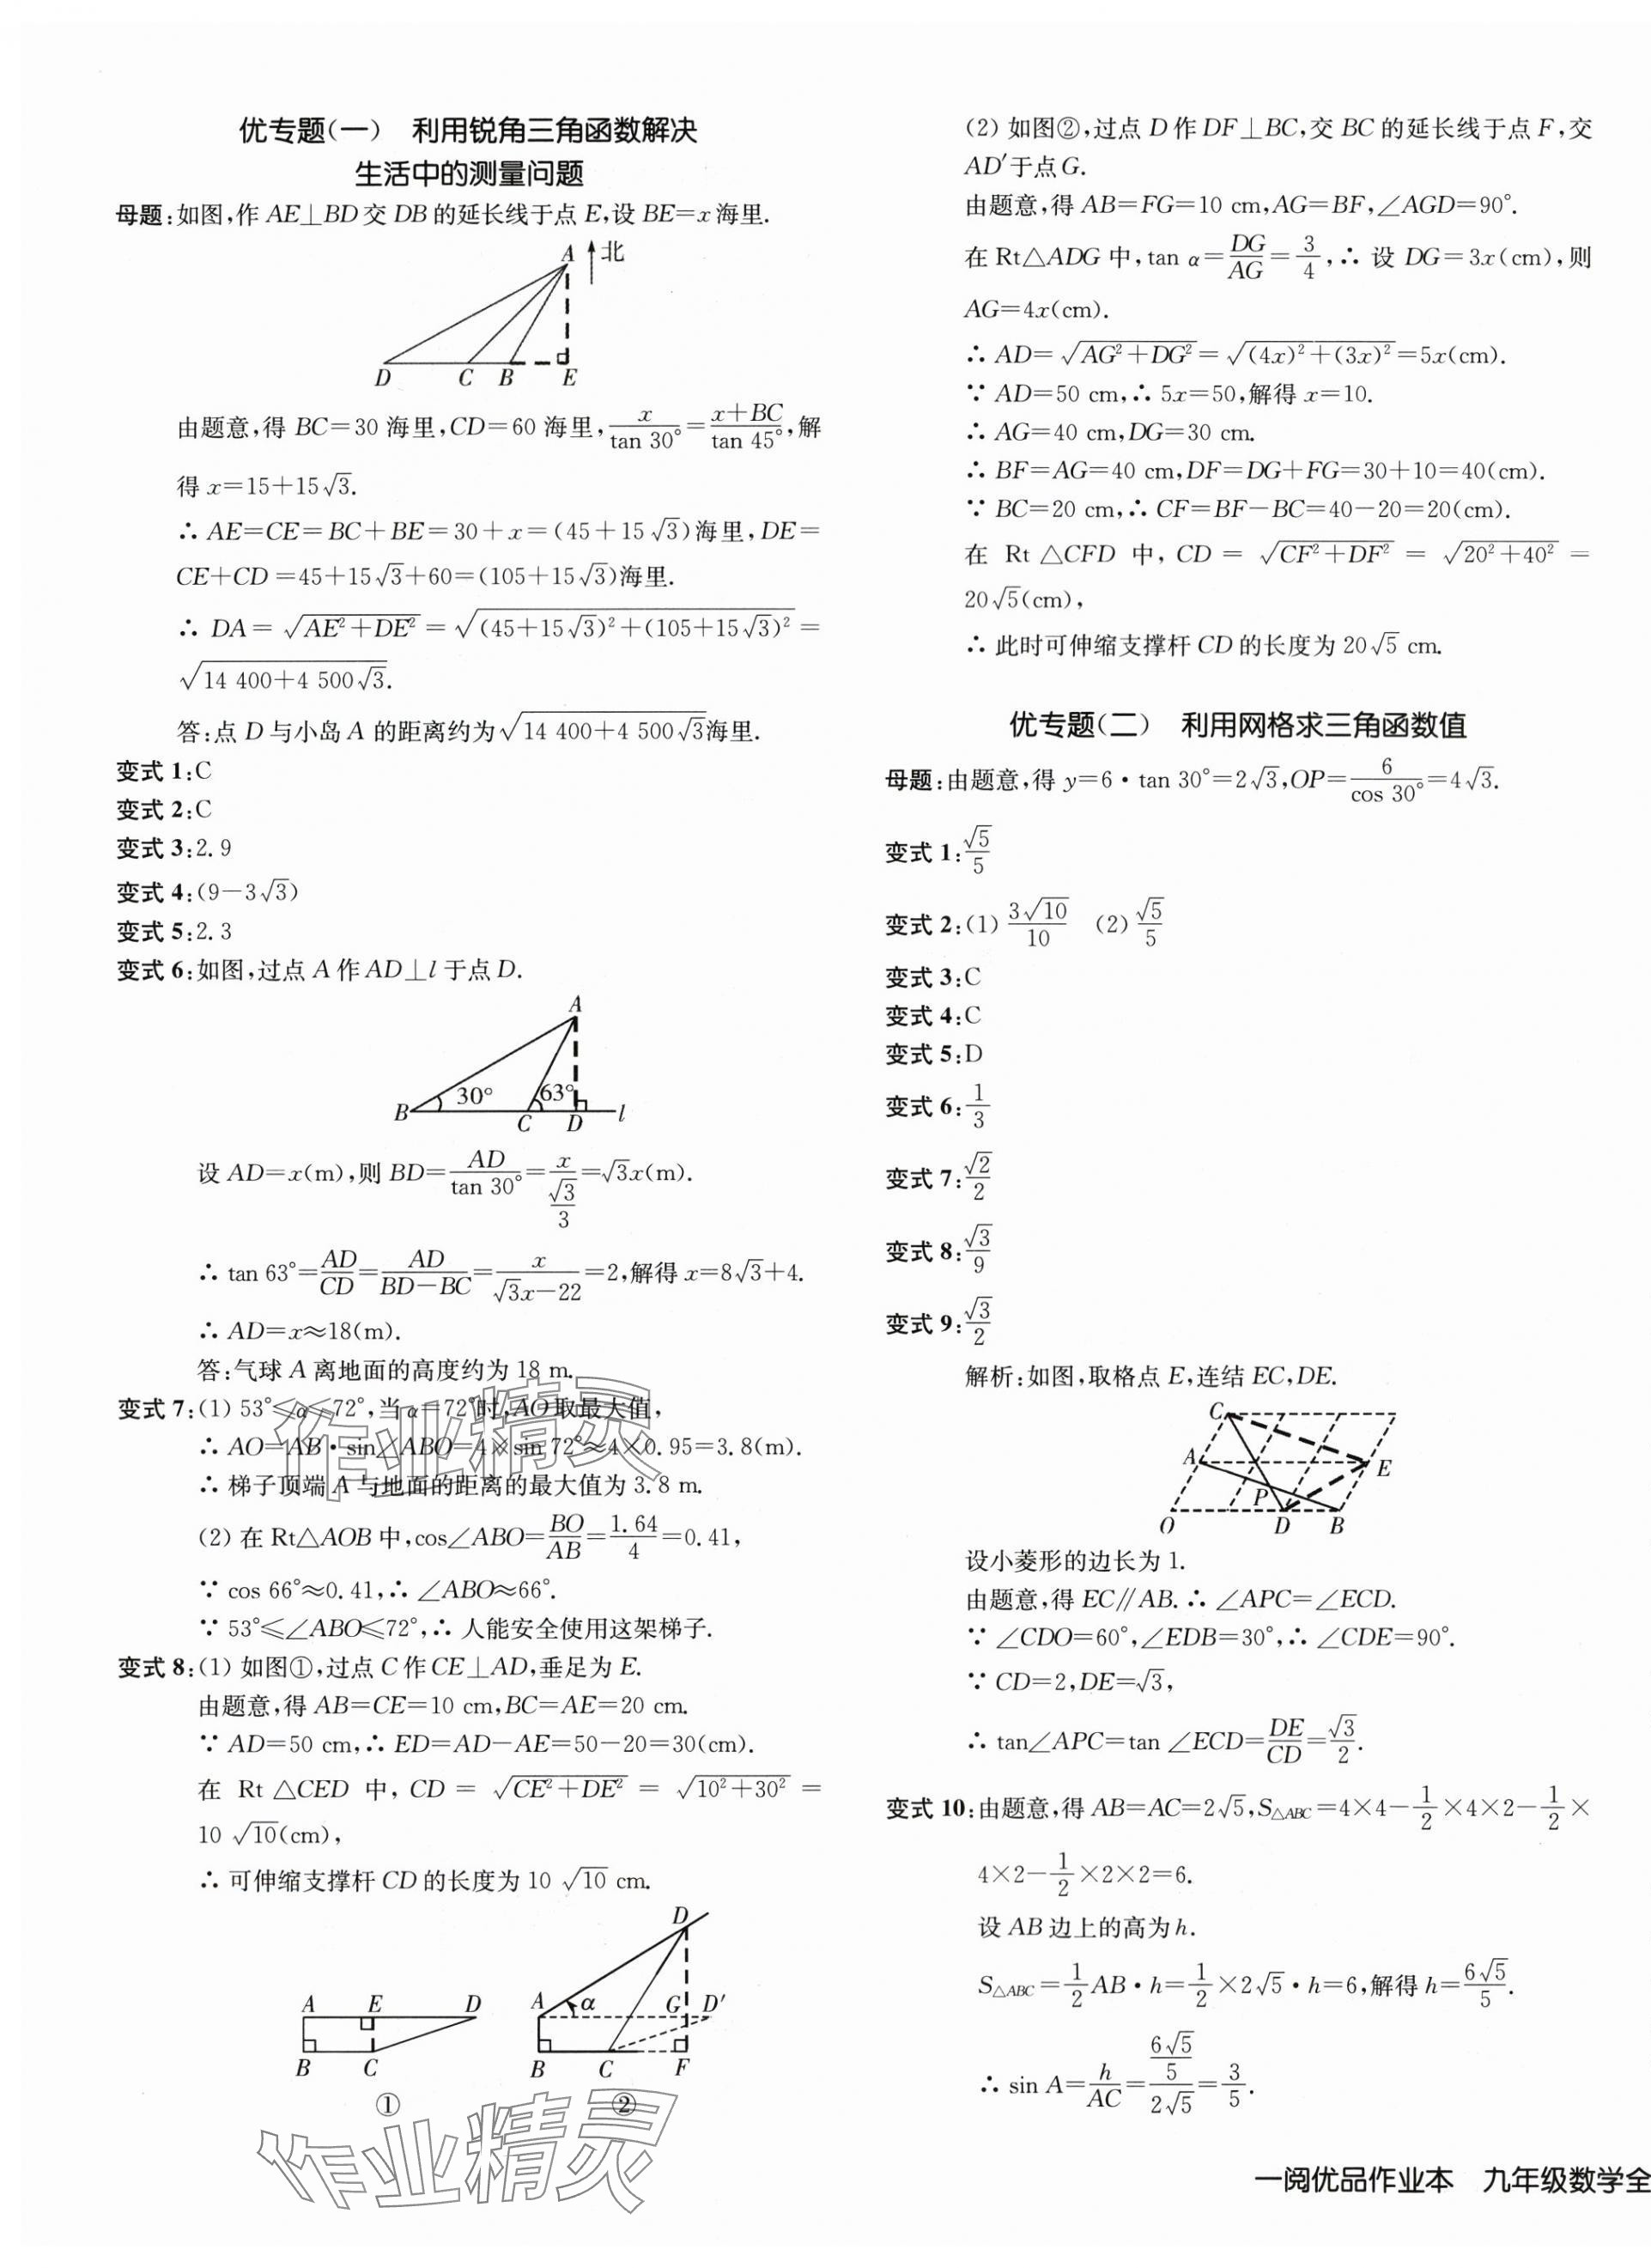 优专题(一)　利用锐角三角函数解决
生活中的测量问题
母题:如图,作 AE⊥BD 交 DB 的延长线于点 E,设 BE=x 海里.
A 北
D C B E
由题意,得 BC=30 海里,CD=60 海里,x/tan 30°=(x+BC)/tan 45°,解
得 x=15+15√3.
∴ AE=CE=BC+BE=30+x=(45+15√3)海里,DE=
CE+CD=45+15√3+60=(105+15√3)海里.
∴ DA=√(AE²+DE²)=√((45+15√3)²+(105+15√3)²)=
√(14 400+4 500√3).
答:点 D 与小岛 A 的距离约为√(14 400+4 500√3)海里.
变式 1:C
变式 2:C
变式 3:2.9
变式 4:(9-3√3)
变式 5:2.3
变式 6:如图,过点 A 作 AD⊥l 于点 D.
A
30° 63°
B C D l
设 AD=x(m),则 BD=AD/tan 30°=x/(√3/3)=√3x(m).
∴ tan 63°=AD/CD=AD/(BD-BC)=x/(√3x-22)=2,解得 x=8√3+4.
∴ AD=x≈18(m).
答:气球 A 离地面的高度约为 18 m.
变式 7:(1) 53°≤α≤72°,当 α=72°时,AO 取最大值,
∴ AO=AB·sin∠ABO=4×sin 72°≈4×0.95=3.8(m).
∴ 梯子顶端 A 与地面的距离的最大值为 3.8 m.
(2) 在 Rt△AOB 中,cos∠ABO=BO/AB=1.64/4=0.41,
∵ cos 66°≈0.41,∴ ∠ABO≈66°.
∵ 53°≤∠ABO≤72°,∴ 人能安全使用这架梯子.
变式 8:(1) 如图①,过点 C 作 CE⊥AD,垂足为 E.
由题意,得 AB=CE=10 cm,BC=AE=20 cm.
∵ AD=50 cm,∴ ED=AD-AE=50-20=30(cm).
在 Rt△CED 中, CD=√(CE²+DE²)=√(10²+30²)=
10√10(cm),
∴ 可伸缩支撑杆 CD 的长度为 10√10 cm.
A E D
B C
①
D
A α G D′
B C F
②
作业精灵
作业精灵
(2) 如图②,过点 D 作 DF⊥BC,交 BC 的延长线于点 F,交
AD′于点 G.
由题意,得 AB=FG=10 cm,AG=BF,∠AGD=90°.
在 Rt△ADG 中,tan α=DG/AG=3/4,∴ 设 DG=3x(cm),则
AG=4x(cm).
∴ AD=√(AG²+DG²)=√((4x)²+(3x)²)=5x(cm).
∵ AD=50 cm,∴ 5x=50,解得 x=10.
∴ AG=40 cm,DG=30 cm.
∴ BF=AG=40 cm,DF=DG+FG=30+10=40(cm).
∵ BC=20 cm,∴ CF=BF-BC=40-20=20(cm).
在 Rt△CFD 中, CD=√(CF²+DF²)=√(20²+40²)=
20√5(cm),
∴ 此时可伸缩支撑杆 CD 的长度为 20√5 cm.
优专题(二)　利用网格求三角函数值
母题:由题意,得 y=6·tan 30°=2√3,OP=6/cos 30°=4√3.
变式 1:√5/5
变式 2:(1) 3√10/10　(2) √5/5
变式 3:C
变式 4:C
变式 5:D
变式 6:1/3
变式 7:√2/2
变式 8:√3/9
变式 9:√3/2
解析:如图,取格点 E,连结 EC,DE.
C
A E
P
O D B
设小菱形的边长为 1.
由题意,得 EC∥AB.∴ ∠APC=∠ECD.
∵ ∠CDO=60°,∠EDB=30°,∴ ∠CDE=90°.
∵ CD=2,DE=√3,
∴ tan∠APC=tan ∠ECD=DE/CD=√3/2.
变式 10:由题意,得 AB=AC=2√5,S△ABC=4×4-1/2×4×2-1/2×
4×2-1/2×2×2=6.
设 AB 边上的高为 h.
S△ABC=1/2AB·h=1/2×2√5·h=6,解得 h=6√5/5.
∴ sin A=h/AC=(6√5/5)/(2√5)=3/5.
一阅优品作业本　九年级数学全